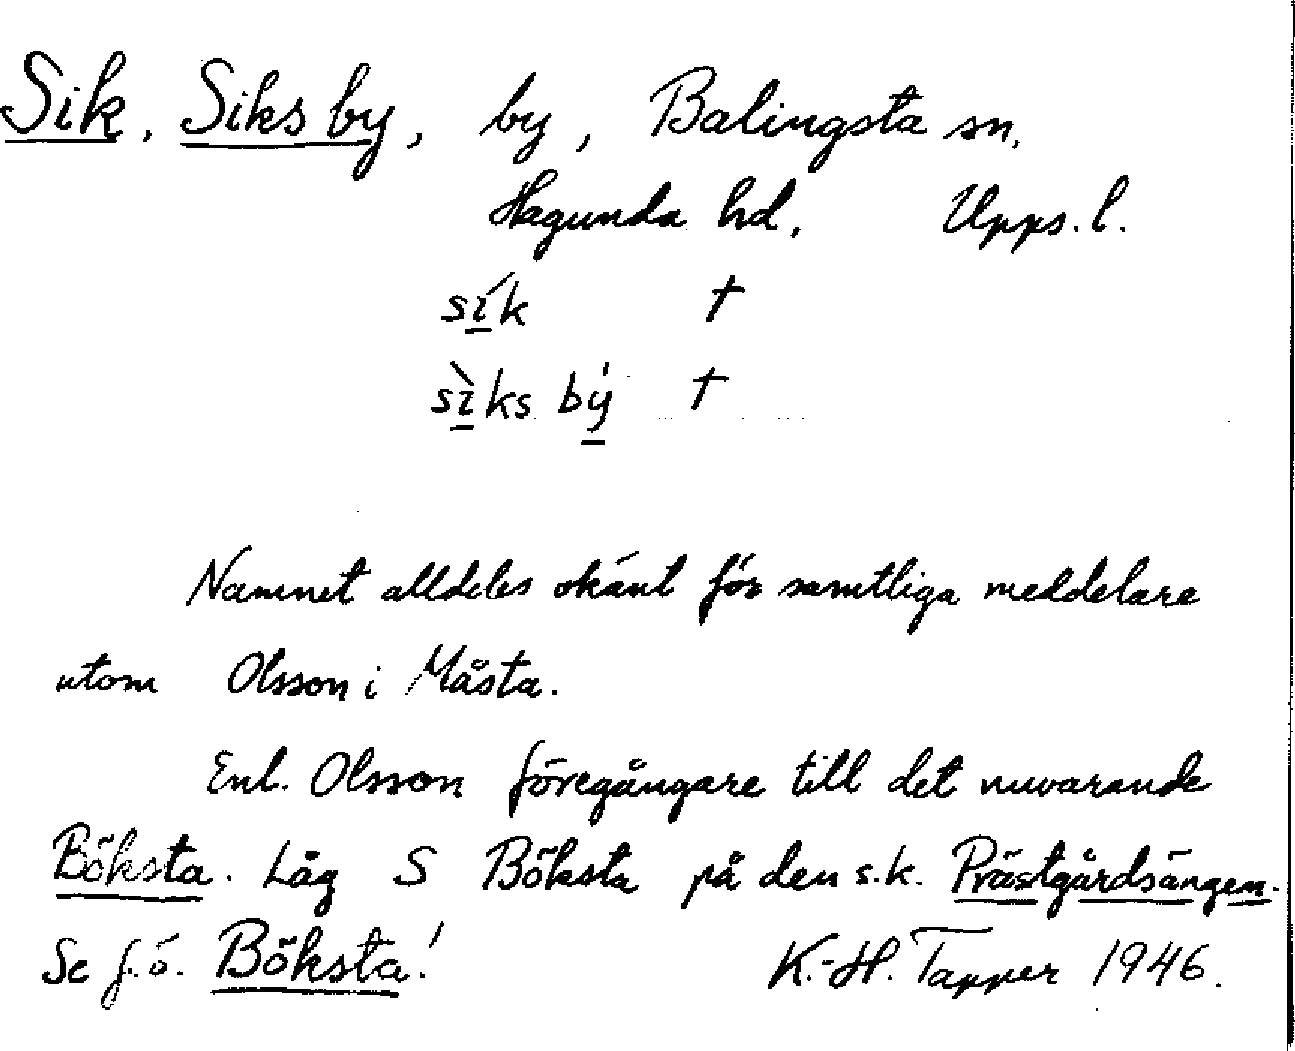 Sik, Siksby, by, Balingsta sn,
Hagunda hd, Upps. l.
sík †
sìks bý †
Namnet alldeles okänt för samtliga meddelare
utom Olsson i Måsta.
Enl. Olsson föregångare till det nuvarande
Böksta. Låg S Böksta på den s.k. Prästgårdsängen.
Se f.ö. Böksta!
K.-H. Tapper 1946.